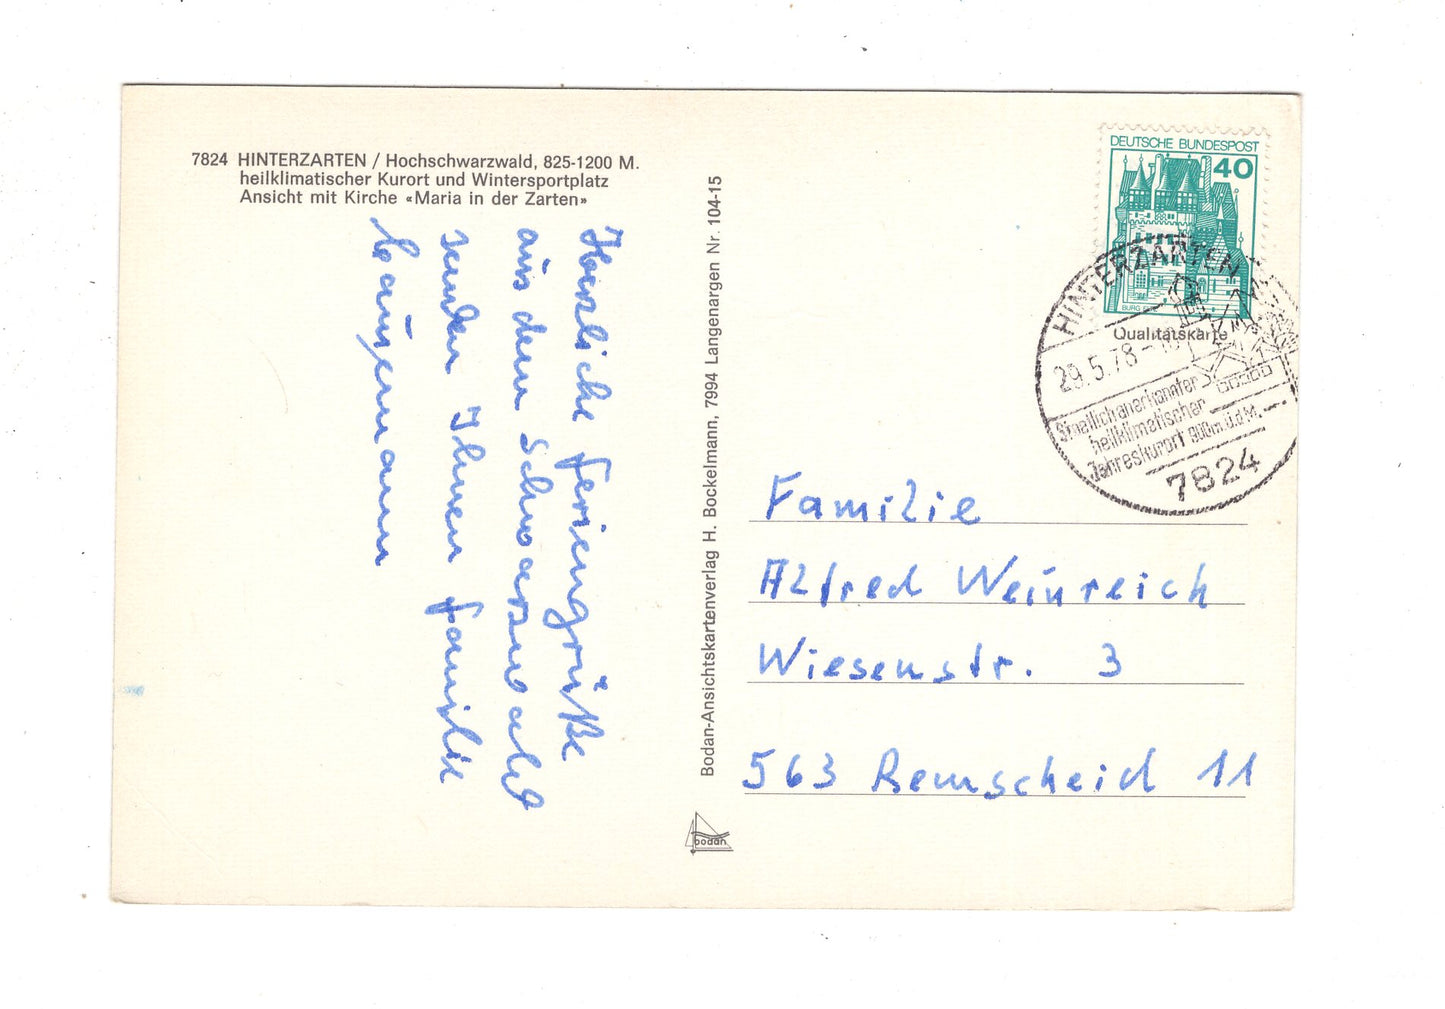 7824 HINTERZARTEN / Hochschwarzwald, 825-1200 M.
heilklimatischer Kurort und Wintersportplatz
Ansicht mit Kirche «Maria in der Zarten»
Herzliche Feriengrüße
aus dem Schwarzwald
senden Ihnen Familie
Bodan-Ansichtskartenverlag H. Bockelmann, 7994 Langenargen Nr. 104-15
bodan
DEUTSCHE BUNDESPOST
40
BURG
Qualitätskarte
HINTERZARTEN
29.5.78
Staatlich anerkannter
heilklimatischer
Jahreskurort 900m.ü.d.M.
7824
Familie
Alfred Weinreich
Wiesenstr. 3
563 Remscheid 11